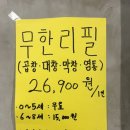 무한리필
(곱창·대창·막창·염통)
26,900원/1인
0~5세 : 무료
6~8세 : 15,000원